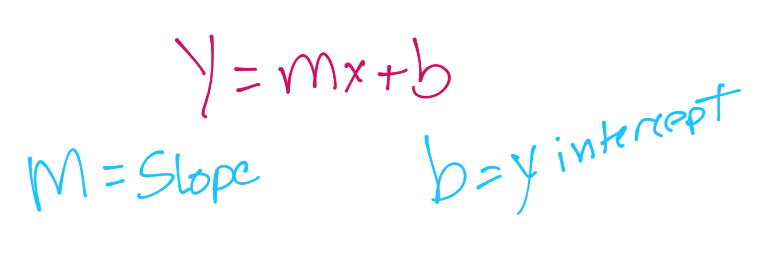 Y = mx + b
M = Slope
b = y intercept